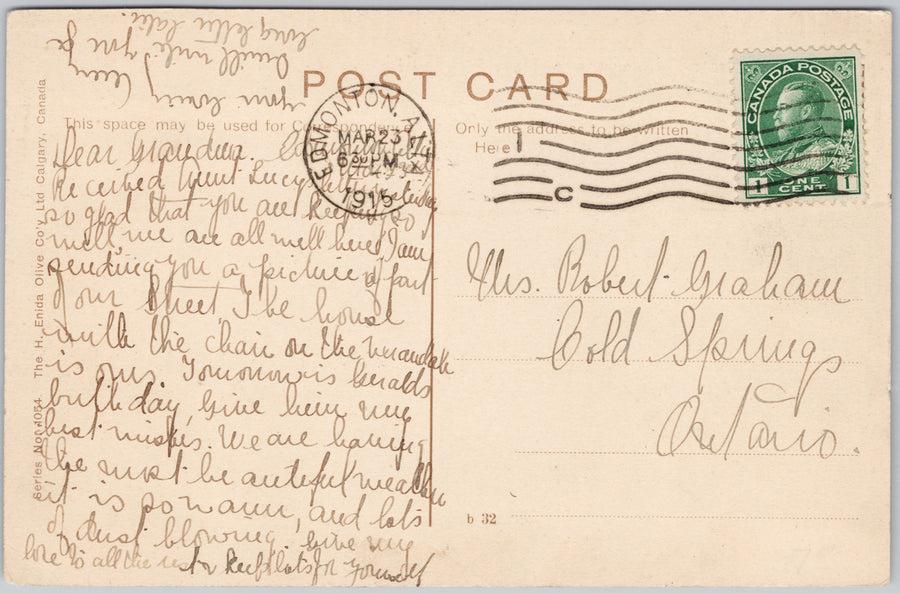 POST CARD
This space may be used for Correspondence
Only the address to be written
Here
EDMONTON, ALTA
MAR 23
630 PM
1915
C
CANADA POSTAGE
1 ONE CENT 1
Dear Grandma.
Received Aunt Lucy's
so glad that you are keeping so
well, we are all well here, I am
sending you a picture of part
of our Street, The house
with the chair on the verandah
is ours, Tomorrow is Geralds
birthday, Give him my
best wishes. We are having
the most beautiful weather
it is so warm, and lots
of dust blowing, give my
love to all the rest & keep lots for yourself
your loving
I will write you a
long letter later.
Mrs. Robert Graham
Cold Springs
Ontario.
b 32
Series No. 1064 The H. Enida Olive Co'y Ltd Calgary, Canada